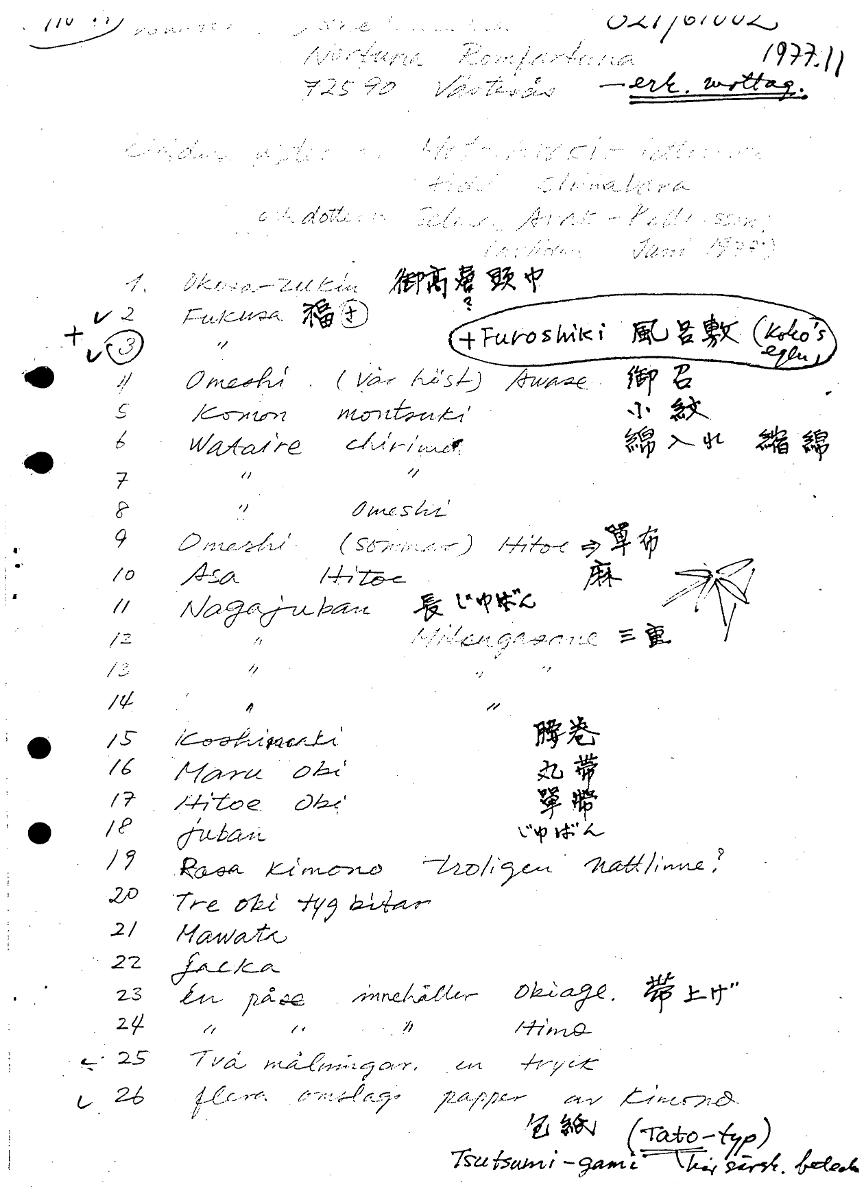 021/61002
1977.11
Nortuna Romfartuna
72590 Västerås – erk. mottag.
Shimabara
och dottern Arak-Pettersson,
Juni 1977)
1. Okoso-zukin 御高 頭巾
?
2 Fukusa 福+
+ 3 " + Furoshiki 風呂敷 (Koko's
4 Omeshi (vår höst) Awase 御召
5 Komon montsuki 小紋
6 Wataire 綿入れ 縮緬
7 " "
8 " Omeshi
9 Omeshi (sommar) Hitoe ⇒ 單布
10 Asa Hitoe 麻
11 Nagajuban 長じゅばん
12 " 三重
13 " " "
14 " "
15 Koshimaki 腰巻
16 Maru obi 丸帯
17 Hitoe Obi 單帯
18 juban じゅばん
19 Rosa Kimono troligen nattlinne?
20 Tre obi tygbitar
21 Mawata
22 Jacka
23 En påse innehåller Obiage. 帯上げ"
24 " " " Himo
25 Två målningar. en tryck
26 flera omslags papper av Kimono
包紙 (Tato-typ)
Tsutsumi-gami här särsk.